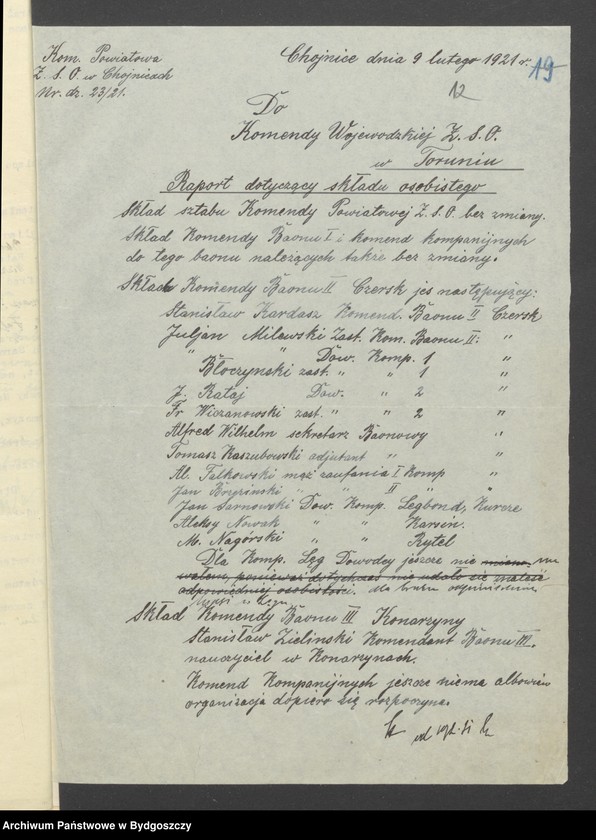 Kom. Powiatowa
Z. S. O. w Chojnicach
Nr. dz. 23/21.
Chojnice dnia 9 lutego 1921 r.
19
12
Do
Komendy Wojewodzkiej Z. S. O.
w Toruniu
Raport dotyczący składu osobistego
Skład sztabu Komendy Powiatowej Z. S. O. bez zmiany.
Skład Komendy Baonu I i komend kompanijnych
do tego baonu należących także bez zmiany.
Skład Komendy Baonu II Czersk jes następujący:
Stanisław Kardasz Komend. Baonu II Czersk
Juljan Milewski Zast. Kom. Baonu II: "
" " Dow. Komp. 1 "
Błoczynski zast. " " 1 "
J. Rataj Dow. " 2 "
Fr Wiczanowski zast. " " 2 "
Alfred Wilhelm sekretarz Baonowy "
Tomasz Kaszubowski adjutant " "
Al. Talkowski mąż zaufania I Komp "
Jan " " II " "
Jan Sarnowski Dow. Komp. Legbond, Kurcze
Aleksy Nowak " " Karsin.
M. Nagórski " " Rytel
Dla Komp. Łąg Dowodcy jeszcze nie
ponieważ dotychczas nie udało się znaleść
odpowiedniej osobistości.
Skład Komendy Baonu III Konarzyny
Stanisław Zielinski Komendant Baonu III.
nauczyciel w Konarzynach.
Komend Kompanijnych jeszcze niema albowiem
organizacja dopiero się rozpoczyna.
Archiwum Państwowe w Bydgoszczy